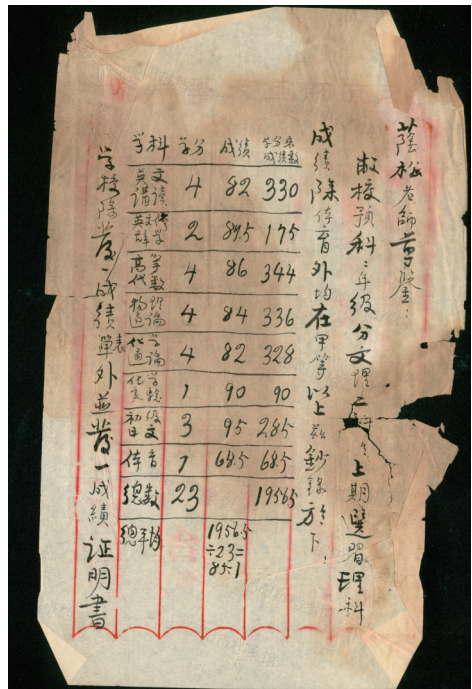 蔭松老師夢鑒：
敝校預科二年級分文理二科 上期選習理科
成績除体育外均在甲等以上茲鈔錄於下：
学科 学分 成績 学分乘成績数
英文講讀 4 82 330
英文修辞学 2 89.5 175
高等代数 4 86 344
物理通論 4 84 336
化学通論 4 82 328
化学実驗 1 90 90
初級日文 3 95 285
体育 1 68.5 68.5
總数 23 1956.5
總平均 1956.5÷23=85.1
学校除發一成績單表外並發一成績証明書